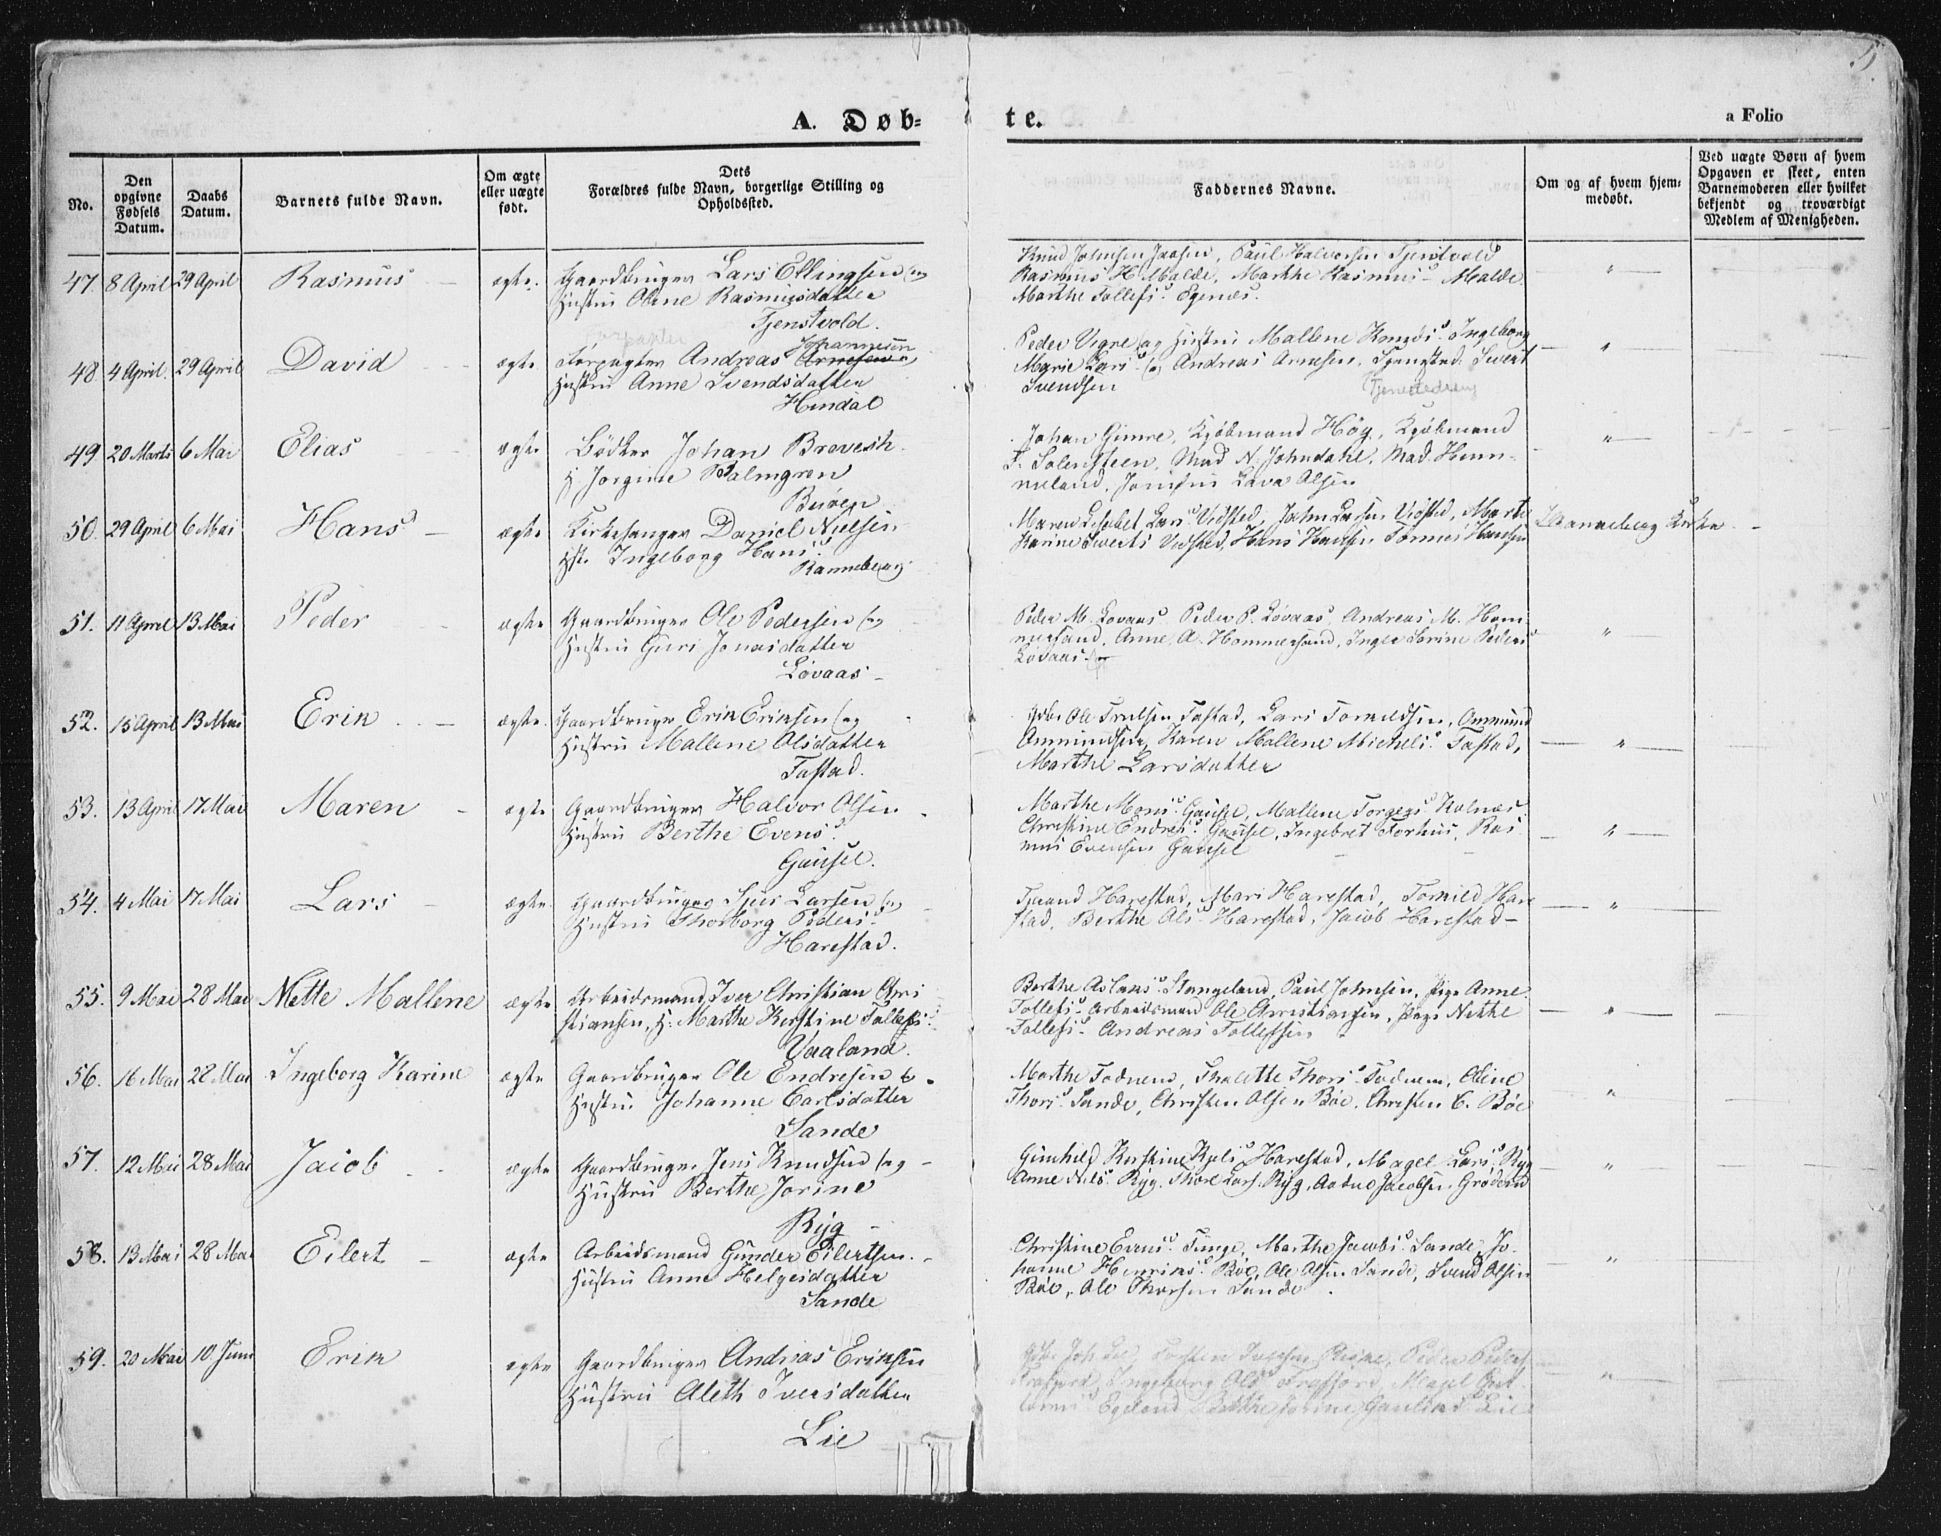 5.
A. Døb=
te.
a Folio
No.
Den opgivne Fødsels Datum.
Daabs Datum.
Barnets fulde Navn.
Om ægte eller uægte født.
Dets Forældres fulde Navn, borgerlige Stilling og Opholdssted.
Faddernes Navne.
Om og af hvem hjem= medøbt.
Ved uægte Børn af hvem Opgaven er skeet, enten Barnemoderen eller hvilket bekjendt og troværdigt Medlem af Menigheden.
47 8 April 29 April Rasmus ægte. Gaardbruger Lars Ellingsen og
Hustru Oline Rasmusdatter
Tjenstvold.
Knud Johnsen Paul Halvorsen Tjenstvold
Rasmus H. Malde, Marthe Rasmus Malde
Marthe Tollefs. Egenæs.
48 4 April. 29 April David ægte Andreas Arnesen Johannesen
Hustru Anne Svendsdatter
Hindal
Peder Vigre og Hustru Mallene Knuds. Ingeborg
Marie Lars. og Andreas Arnesen, Sivert
Svendsen
49 20 Marts 6 Mai Elias ægte Bødker Johan
H. Jorgine Palmgren
Buøen
Johan Gimre, Kjøbmand Høy, Kjøbmand
Mad. N. Johndahl, Mad. Hum-
Olsen
50. 29 April 6 Mai Hans ægte Kirkesanger Daniel Nielsen
Hst. Ingeborg Hans.
Ranneberg
Maren Lisabet Lars. Vidsted, John Larsen Vidsted, Marte
Karine Siverts Vidsted, Hans Hansen Tønnes Hansen
Ranneberg Kirke
51. 11 April 13 Mai Peder ægte Gaardbruger Ole Pedersen og
Hustru Guri Jonasdatter
Løvaas
Peder M. Løvaas, Peder P. Løvaas, Andreas M. Hom-
mersand, Anne A. Hommersand, Inger Serine Peders
Løvaas
52. 15 April 13 Mai Erik ægte. Gaardbruger Erik Eriksen og
Hustru Mallene Olsdatter
Tastad.
Gdbr Ole Trulsen Tastad, Lars Tomildsen, Ommund
Ommundsen, Karen Mallene Michels. Tastad,
Marthe Larsdatter
53. 13 April 17 Mai Maren ægte Gaardbruger Halvor Olsen
Hustru Berthe Evens.
Gausel.
Marthe Mons. Gausel, Mallene Torgers
Christine Endres. Gausel, Ingebret Forhus, Ras
mus Evensen Gausel
54. 4 Mai 17 Mai Lars ægte. Gaardbruger Sjur Larsen og
Hustru Thorborg Peders.
Harestad.
Harestad, Mari Harestad, Tomild Hare
stad, Berthe Ols. Harestad, Jacob Harestad
55. 9 Mai 28 Mai Mette Mallene ægte Arbeidsmand Iver Christian Chri
stiansen, H. Marthe Kirstine Tollefs.
Vaaland.
Berthe Aslaks. Stangeland, Paul Johnsen, Pige Anne
Tollefs. Arbeidsmand Ole Christiansen, Pige Nethe
Tollefs. Andreas Tollefsen
56. 16 Mai 28 Mai Ingeborg Karine ægte Gaardbruger Ole Endresen og
Hustru Johanne Carlsdatter
Sande
Marthe Todnem, Thalette Thors. Todnem, Oline
Thors. Sande, Christen Olsen Bøe, Christen C. Bøe
57. 12 Mai 28 Mai Jacob ægte Gaardbruger Jens Knudsen og
Hustru Berthe Jorine
Ryg
Gunhild Kirstine Harestad, Magel Lars. Ryg
Anne Nils. Ryg. Thore Lars. Ryg, Jacobsen Grødem
58. 13 Mai 28 Mai Eilert ægte Arbeidsmand Gunder Eilertsen
Hustru Anne Helgesdatter
Sande
Christine Evens. Tunge, Marthe Jacobs. Sande, Jo-
hanne Henriks. Bøe, Ole Olsen Sande, Svend Olsen
Bøe, Ole Thorsen Sande
59. 20 Mai 10. Juni Erik ægte Gaardbruger Andreas Eriksen
Hustru Aleth Iversdatter
Lie
Peder Peders
Ingeborg Ols. Magel
Egeland Berthe Jorine Lie